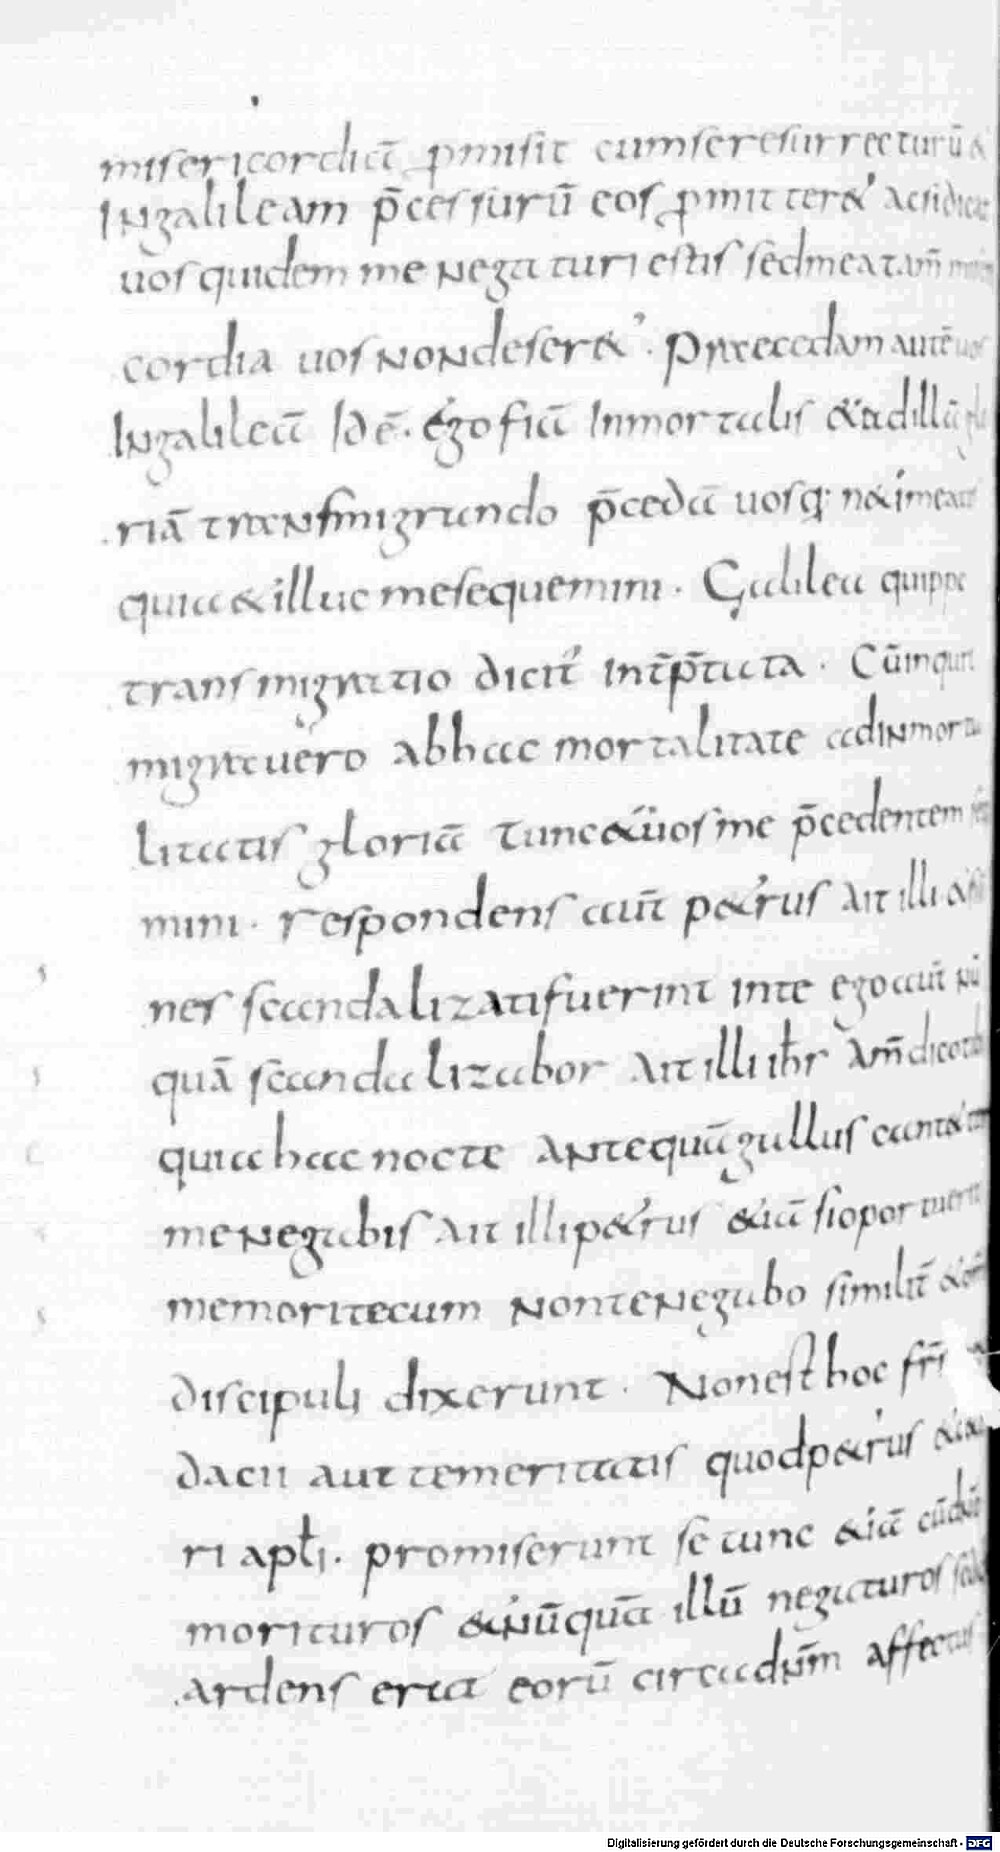 misericordiā ꝓmisit cum se resurrecturū &
In galileam p̄cessurū eos ꝓmitter& ac si dicat
uos quidem me negaturi estis sed mea tam̄
cordia uos non deser&. Praecedam autē uos
In galileā Id ē. Ego fiā Inmortalis & ad illā
riā transmigrando p̄cedā uosq; n& meam
quia & illuc me sequemini. Galilea quippe
transmigratio dicit̄ int̄p̄tata. Cū
migrauero ab hac mortalitate ad inmorta
litatis gloriā Tunc & uos me p̄cedentem
mini. respondens aut̄ p&rus ait illi &si
nes scandalizati fuerint in te ego aut̄ nū
quā scandalizabor Ait illi ih̄s Am̄ dico tibi
quia hac nocte Antequā gallus cant&
me negabis Ait illi p&rus &iā si oportuerit
me mori tecum non te negabo similit̄ & om̄
discipuli dixerunt. Non est hoc
daciae aut temeritatis quod p&rus &
ri apl̄i. promiserunt se tunc &iā cū
morituros & nūquā illū negaturos sed
ardens erat eorū circa dn̄m affectus
Digitalisierung gefördert durch die Deutsche Forschungsgemeinschaft - DFG